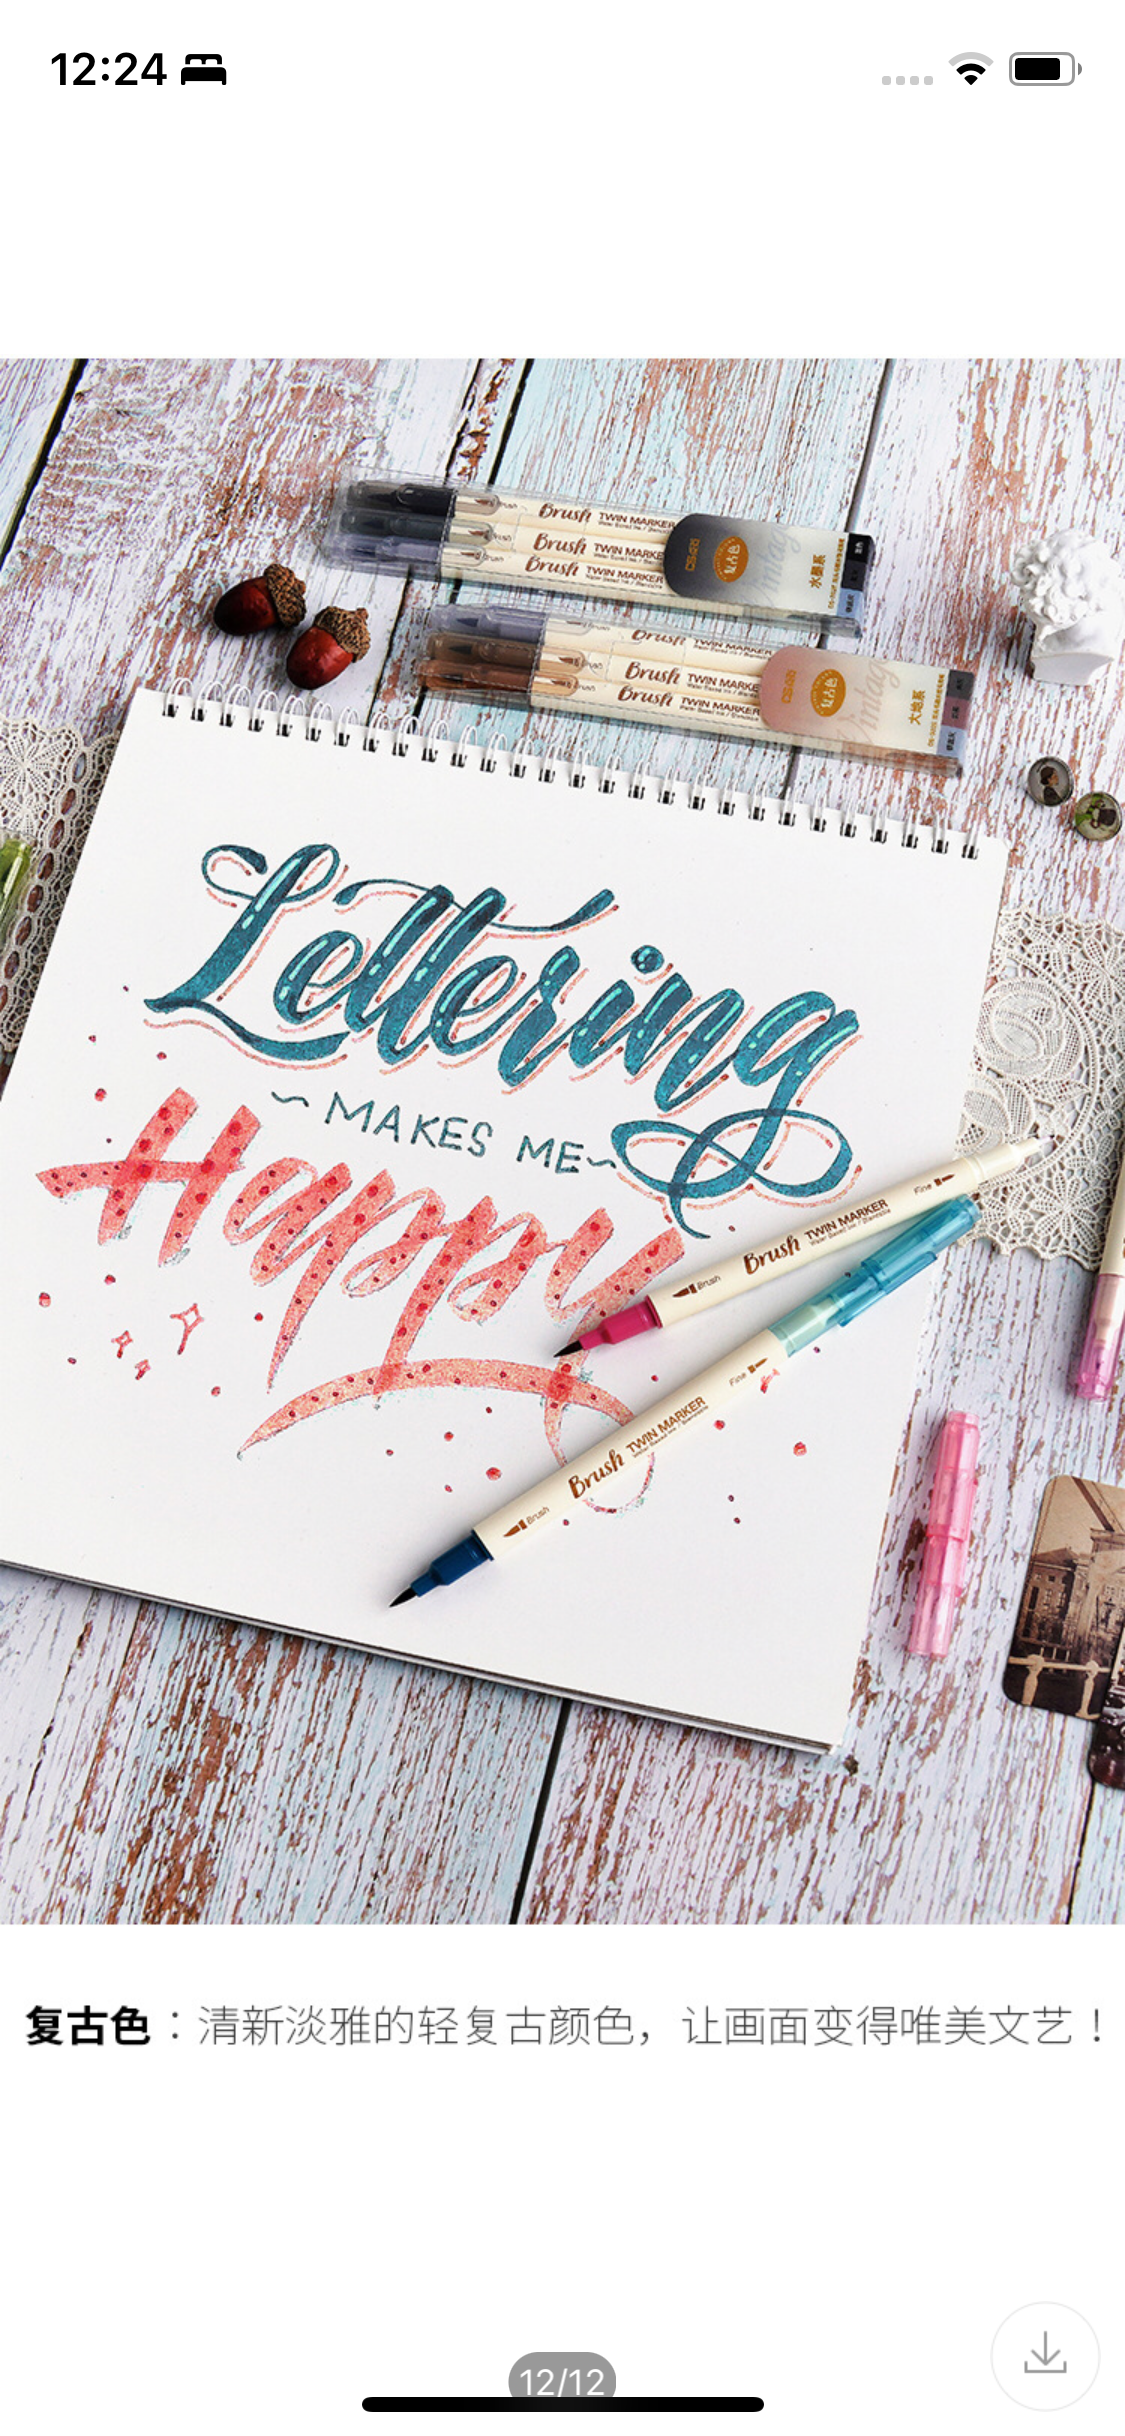 12:24
Brush TWIN MARKER
Brush TWIN MARKER
Brush TWIN MARKER
复古色
水墨系
Brush TWIN MARKER
Brush TWIN MARKE
Brush TWIN MARKE
复古色
大地系
Lettering
~MAKES ME~
Happy
Fine
Brush TWIN MARKER
Water Based Ink / Bienvisible
Brush
Fine
Brush TWIN MARKER
Brush
复古色：清新淡雅的轻复古颜色，让画面变得唯美文艺！
12/12